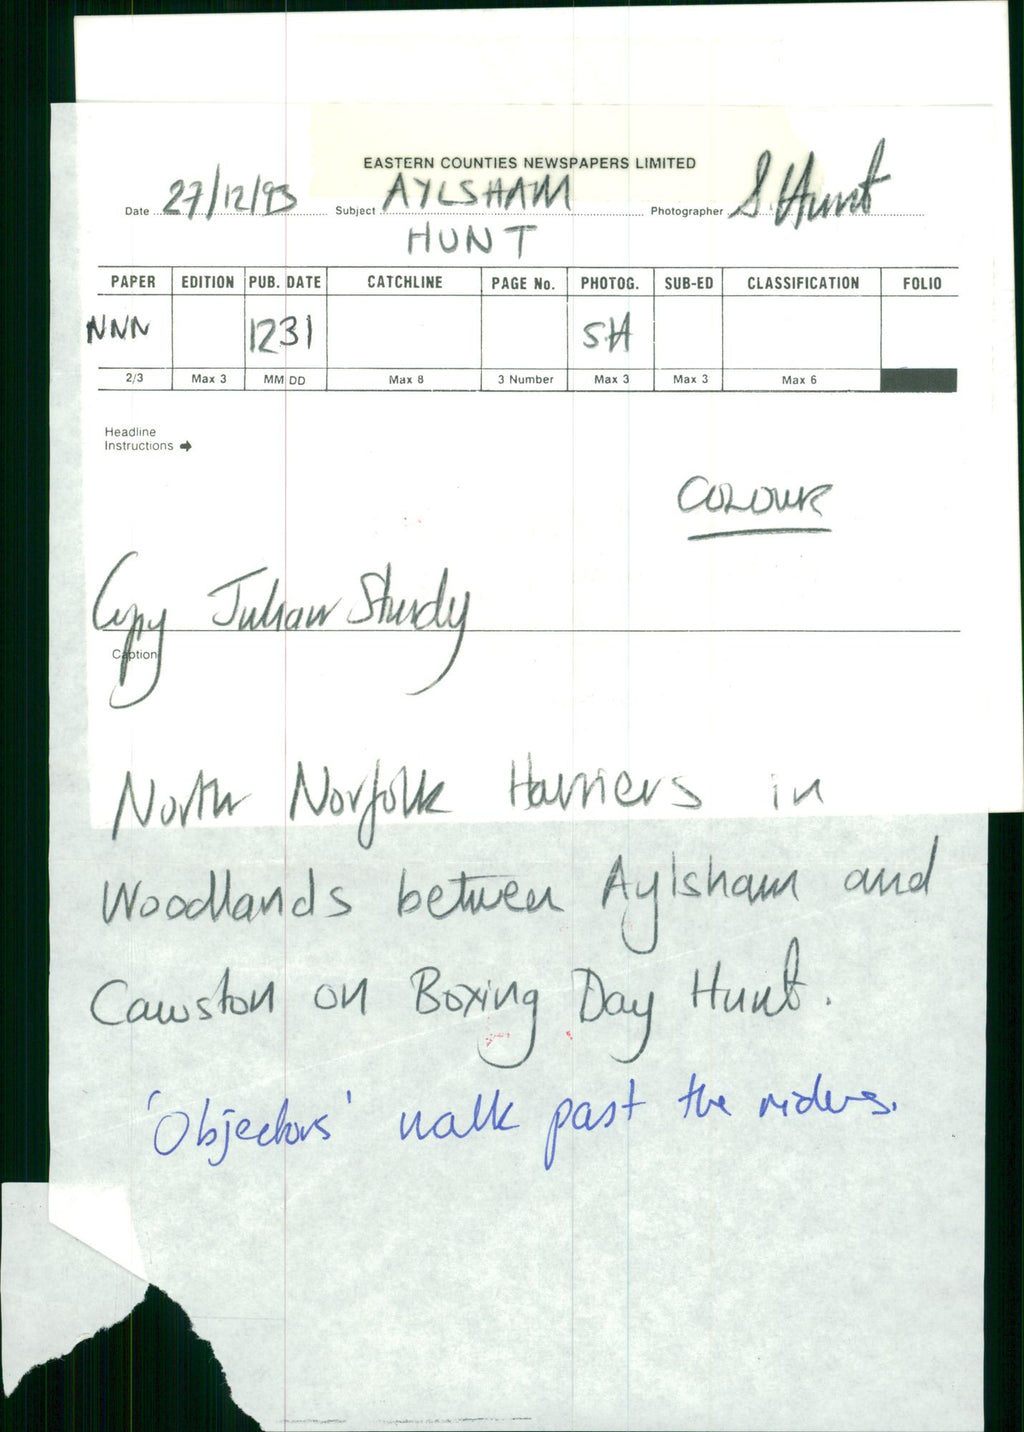 EASTERN COUNTIES NEWSPAPERS LIMITED
Date 27/12/93 Subject AYLSHAM Photographer S. Hunt
HUNT
PAPER EDITION PUB. DATE CATCHLINE PAGE No. PHOTOG. SUB-ED CLASSIFICATION FOLIO
NNN 1231 SH
2/3 Max 3 MM DD Max 8 3 Number Max 3 Max 3 Max 6
Headline
Instructions ➔
COLOUR
Copy Julian Sturdy
Caption
North Norfolk Harriers in
Woodlands between Aylsham and
Cawston on Boxing Day Hunt.
'Objectors' walk past the riders.